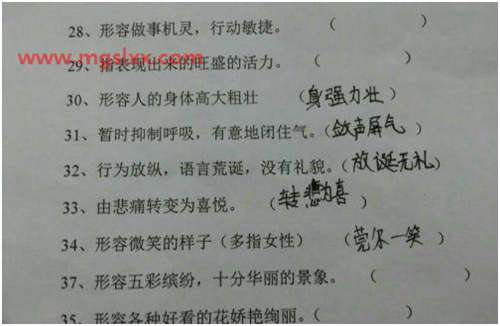 28、形容做事机灵，行动敏捷。（ ）
www.mgslxx.com
29、指表现出来的旺盛的活力。（ ）
30、形容人的身体高大粗壮 （身强力壮）
31、暂时抑制呼吸，有意地闭住气。（敛声屏气）
32、行为放纵，语言荒诞，没有礼貌。（放诞无礼）
33、由悲痛转变为喜悦。（转悲为喜）
34、形容微笑的样子（多指女性） （莞尔一笑）
37、形容五彩缤纷，十分华丽的景象。（ ）
35、形容各种好看的花娇艳绚丽。（ ）